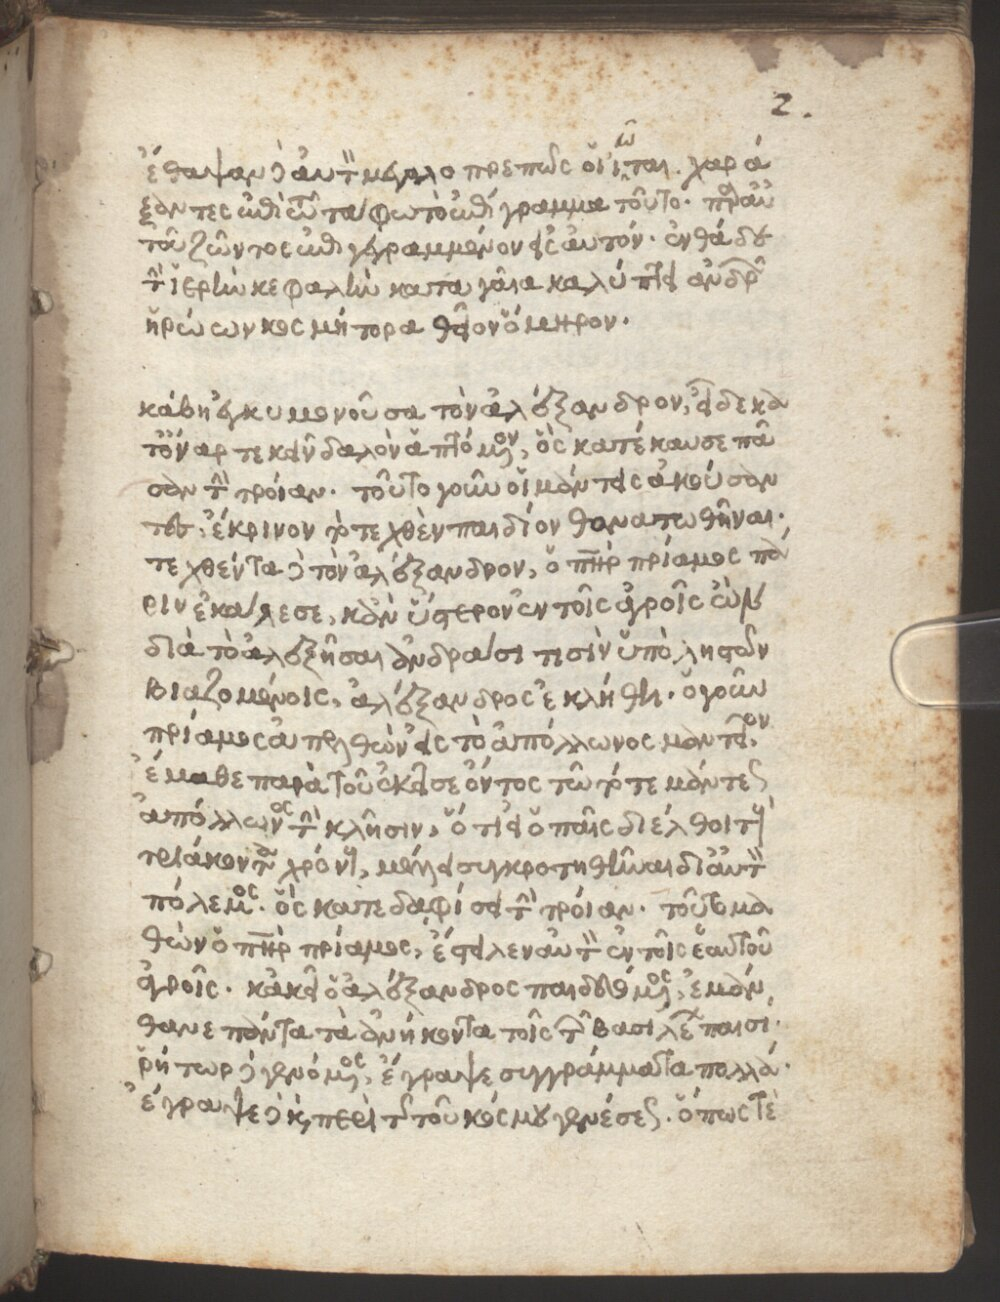 2.
ἔθαψαν δ' αὐτὸν μεγαλοπρεπῶς οἱ ἰῆται. χαρά
ξαντες ἐπὶ τῶ τάφω τὸ ἐπίγραμμα τοῦτο. παρ' αὐ
τοῦ ζῶντος ἐπιγεγραμμένον εἰς αὐτόν. ἐνθάδε
τὴν ἱερὴν κεφαλὴν κατὰ γαῖα καλύπτει ἀνδρῶν
ἡρώων κοσμήτορα θεῖον ὅμηρον.
κάβη ἐγκυμονοῦσα τὸν ἀλέξανδρον, εἶδε κα
τ' ὄναρ τεκεῖν δαλὸν ἁπτόμενον, ὃς κατέκαυσε πᾶ
σαν τὴν τροίαν. τοῦτο γοῦν οἱ μάντεις ἀκούσαν
τες, ἔκρινον τὸ τεχθὲν παιδίον θανατωθῆναι.
τεχθέντα δὲ τὸν ἀλέξανδρον, ὁ πατὴρ πρίαμος πά
ριν ἐκάλεσε, κἂν ὕστερον ἐν τοῖς ἀγροῖς ὢν
διὰ τὸ ἀλεξῆσαι ἀνδράσί τισιν ὑπὸ ληστῶν
βιαζομένοις, ἀλέξανδρος ἐκλήθη. ὁ γοῦν
πρίαμος ἀπελθὼν εἰς τὸ ἀπόλλωνος μαντεῖον,
ἔμαθε παρὰ τοῦ ἐκεῖσε ὄντος τῶ τότε μάντεως
ἀπόλλωνος τὴν κλῆσιν, ὅτι εἰ ὁ παῖς διέλθοι τὸν
τριάκοντα χρόνον, μέλλει συγκροτηθῆναι δι' αὐτὸν
πόλεμος. ὃς κατεδαφίσει τὴν τροίαν. τοῦτο μα
θὼν ὁ πατὴρ πρίαμος, ἔστειλεν αὐτὸν ἐν τοῖς ἑαυτοῦ
ἀγροῖς. κἀκεῖ ὁ ἀλέξανδρος παιδευθείς, ἐμάν
θανε πάντα τὰ ἀνήκοντα τοῖς τῶν βασιλέων παισί.
ῥήτωρ δὲ γενόμενος, ἔγραψε συγγράμματα πολλά.
ἔγραψε δὲ καὶ περὶ τῆς τοῦ κόσμου γενέσεως. ὅπως τὲ